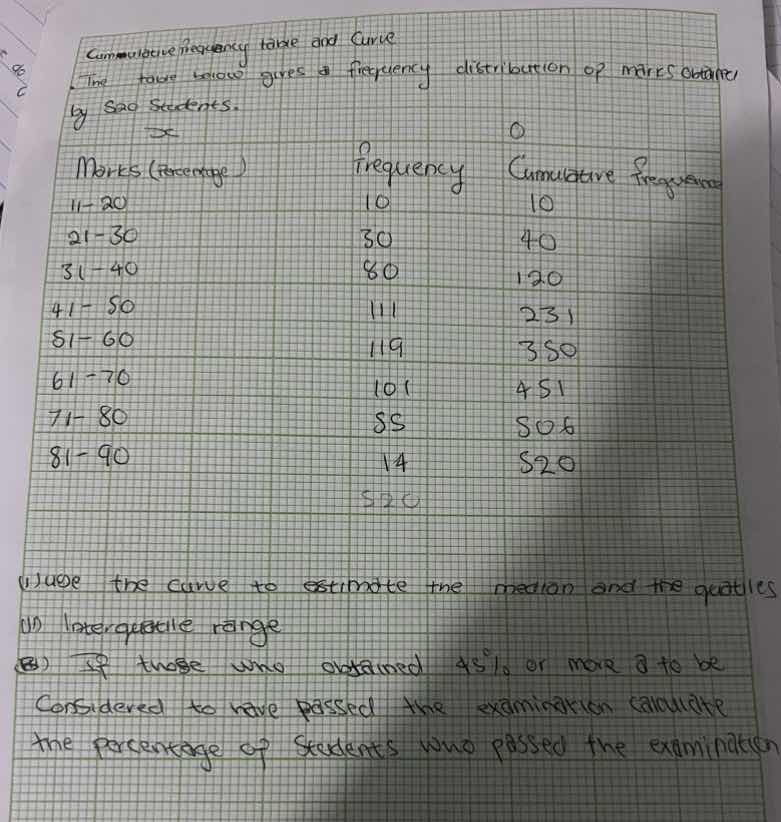 Cummulative frequency table and Curve
The table below gives a frequency distribution of marks obtaine
by 520 Students.
x 0
Marks (Percentage) frequency Cumulative frequence
11-20 10 10
21-30 30 40
31-40 80 120
41-50 111 231
51-60 119 350
61-70 101 451
71-80 55 506
81-90 14 520
520
(i) use the curve to estimate the median and the quatiles
(ii) Interquatile range
(B) If those who obtained 45% or more a to be
Considered to have passed the examination calculate
the percentage of Students who passed the examination